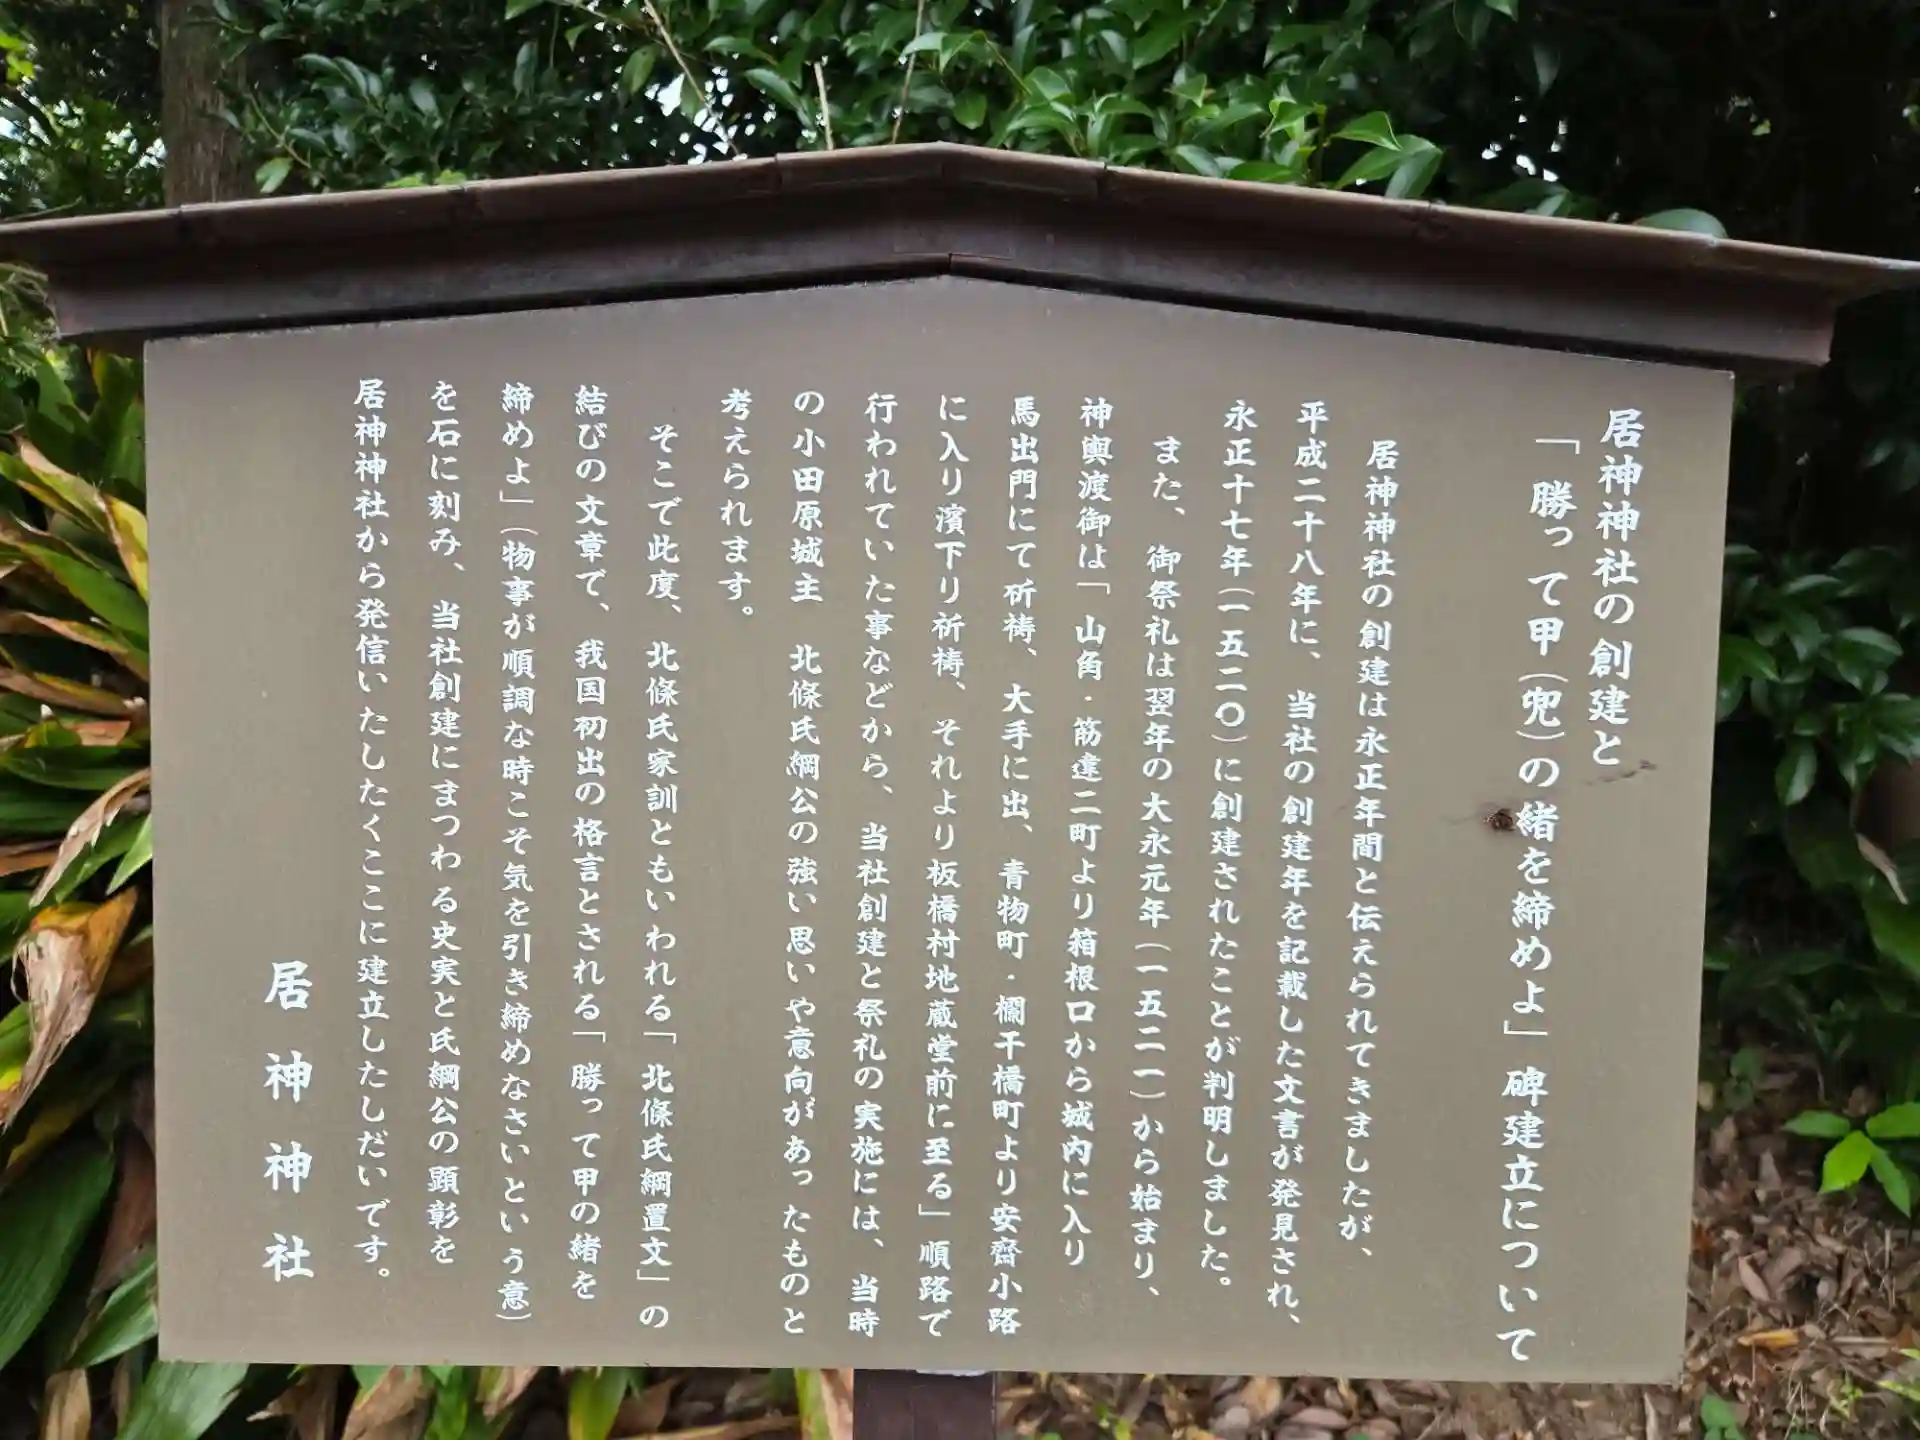 居神神社の創建と
「勝って甲（兜）の緒を締めよ」碑建立について
居神神社の創建は永正年間と伝えられてきましたが、
平成二十八年に、当社の創建年を記載した文書が発見され、
永正十七年（一五二〇）に創建されたことが判明しました。
また、御祭礼は翌年の大永元年（一五二一）から始まり、
神輿渡御は「山角・筋違二町より箱根口から城内に入り
馬出門にて祈祷、大手に出、青物町・欄干橋町より安齋小路
に入り濱下り祈祷、それより板橋村地蔵堂前に至る」順路で
行われていた事などから、当社創建と祭礼の実施には、当時
の小田原城主　北條氏綱公の強い思いや意向があったものと
考えられます。
そこで此度、北條氏家訓ともいわれる「北條氏綱置文」の
結びの文章で、我国初出の格言とされる「勝って甲の緒を
締めよ」（物事が順調な時こそ気を引き締めなさいという意）
を石に刻み、当社創建にまつわる史実と氏綱公の顕彰を
居神神社から発信いたしたくここに建立したしだいです。
居神神社